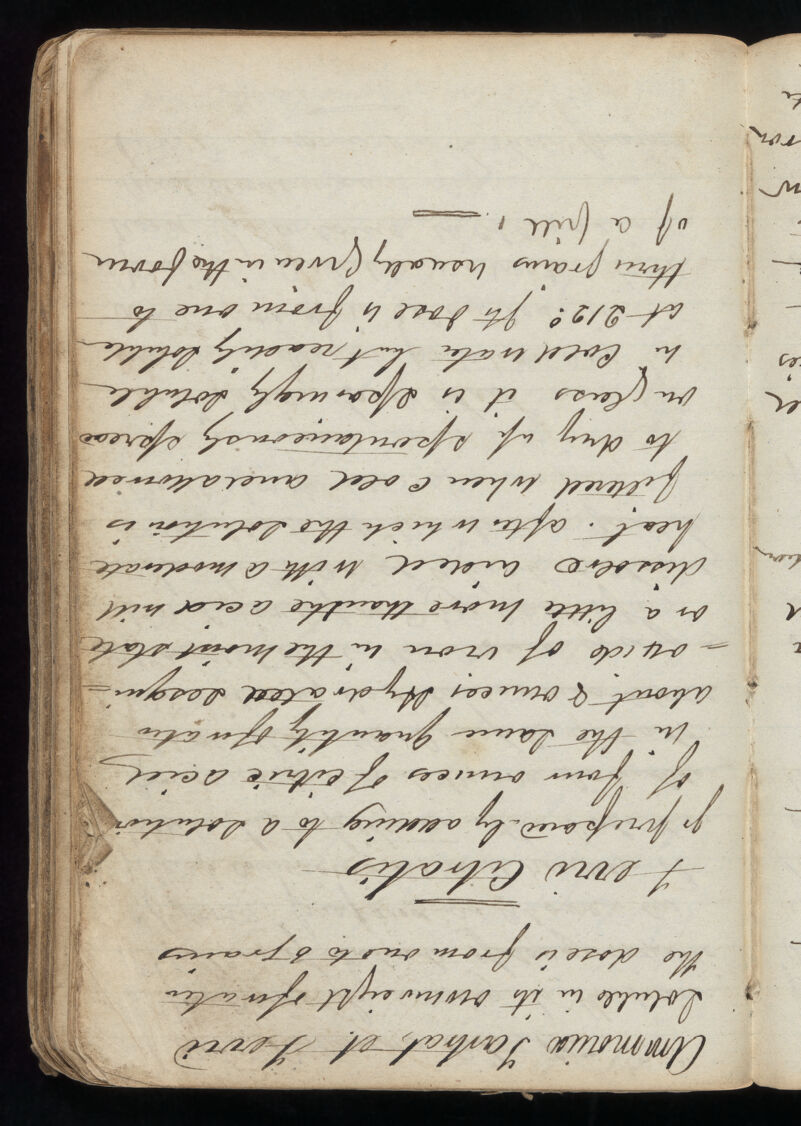 Ammonia Tartrat, et Ferri
Soluble in its own weight of water
the dose is from one to 5 grains
Ferri Citratis
Is prepared by adding to a solution
of four ounces of citric acid
in the same quantity of water
about 2 ounces Hydrated Sesqui=
=oxide of iron in the moist state
or a little more than the acid will
dissolve aided with a moderate
heat. after which the solution is
filtered when cold and allowed
to dry up spontaneously spread
on glass it is sparingly soluble
in Cold water but readily soluble
at 212° Its dose is from one to
three grains usually given in the form
of a pill,